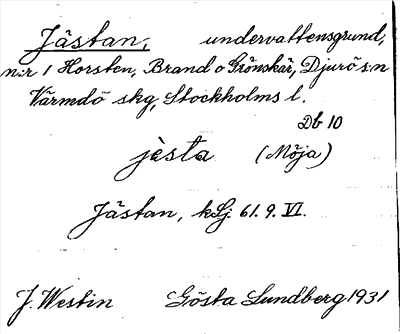 Jästan, undervattensgrund,
n:r 1 Horsten, Brand o Grönskär, Djurö s:n
Värmdö skg, Stockholms l.
Db 10
jèsta (Möja)
Jästan, kLj 61.9.VI.
J. Westin Gösta Lundberg 1931